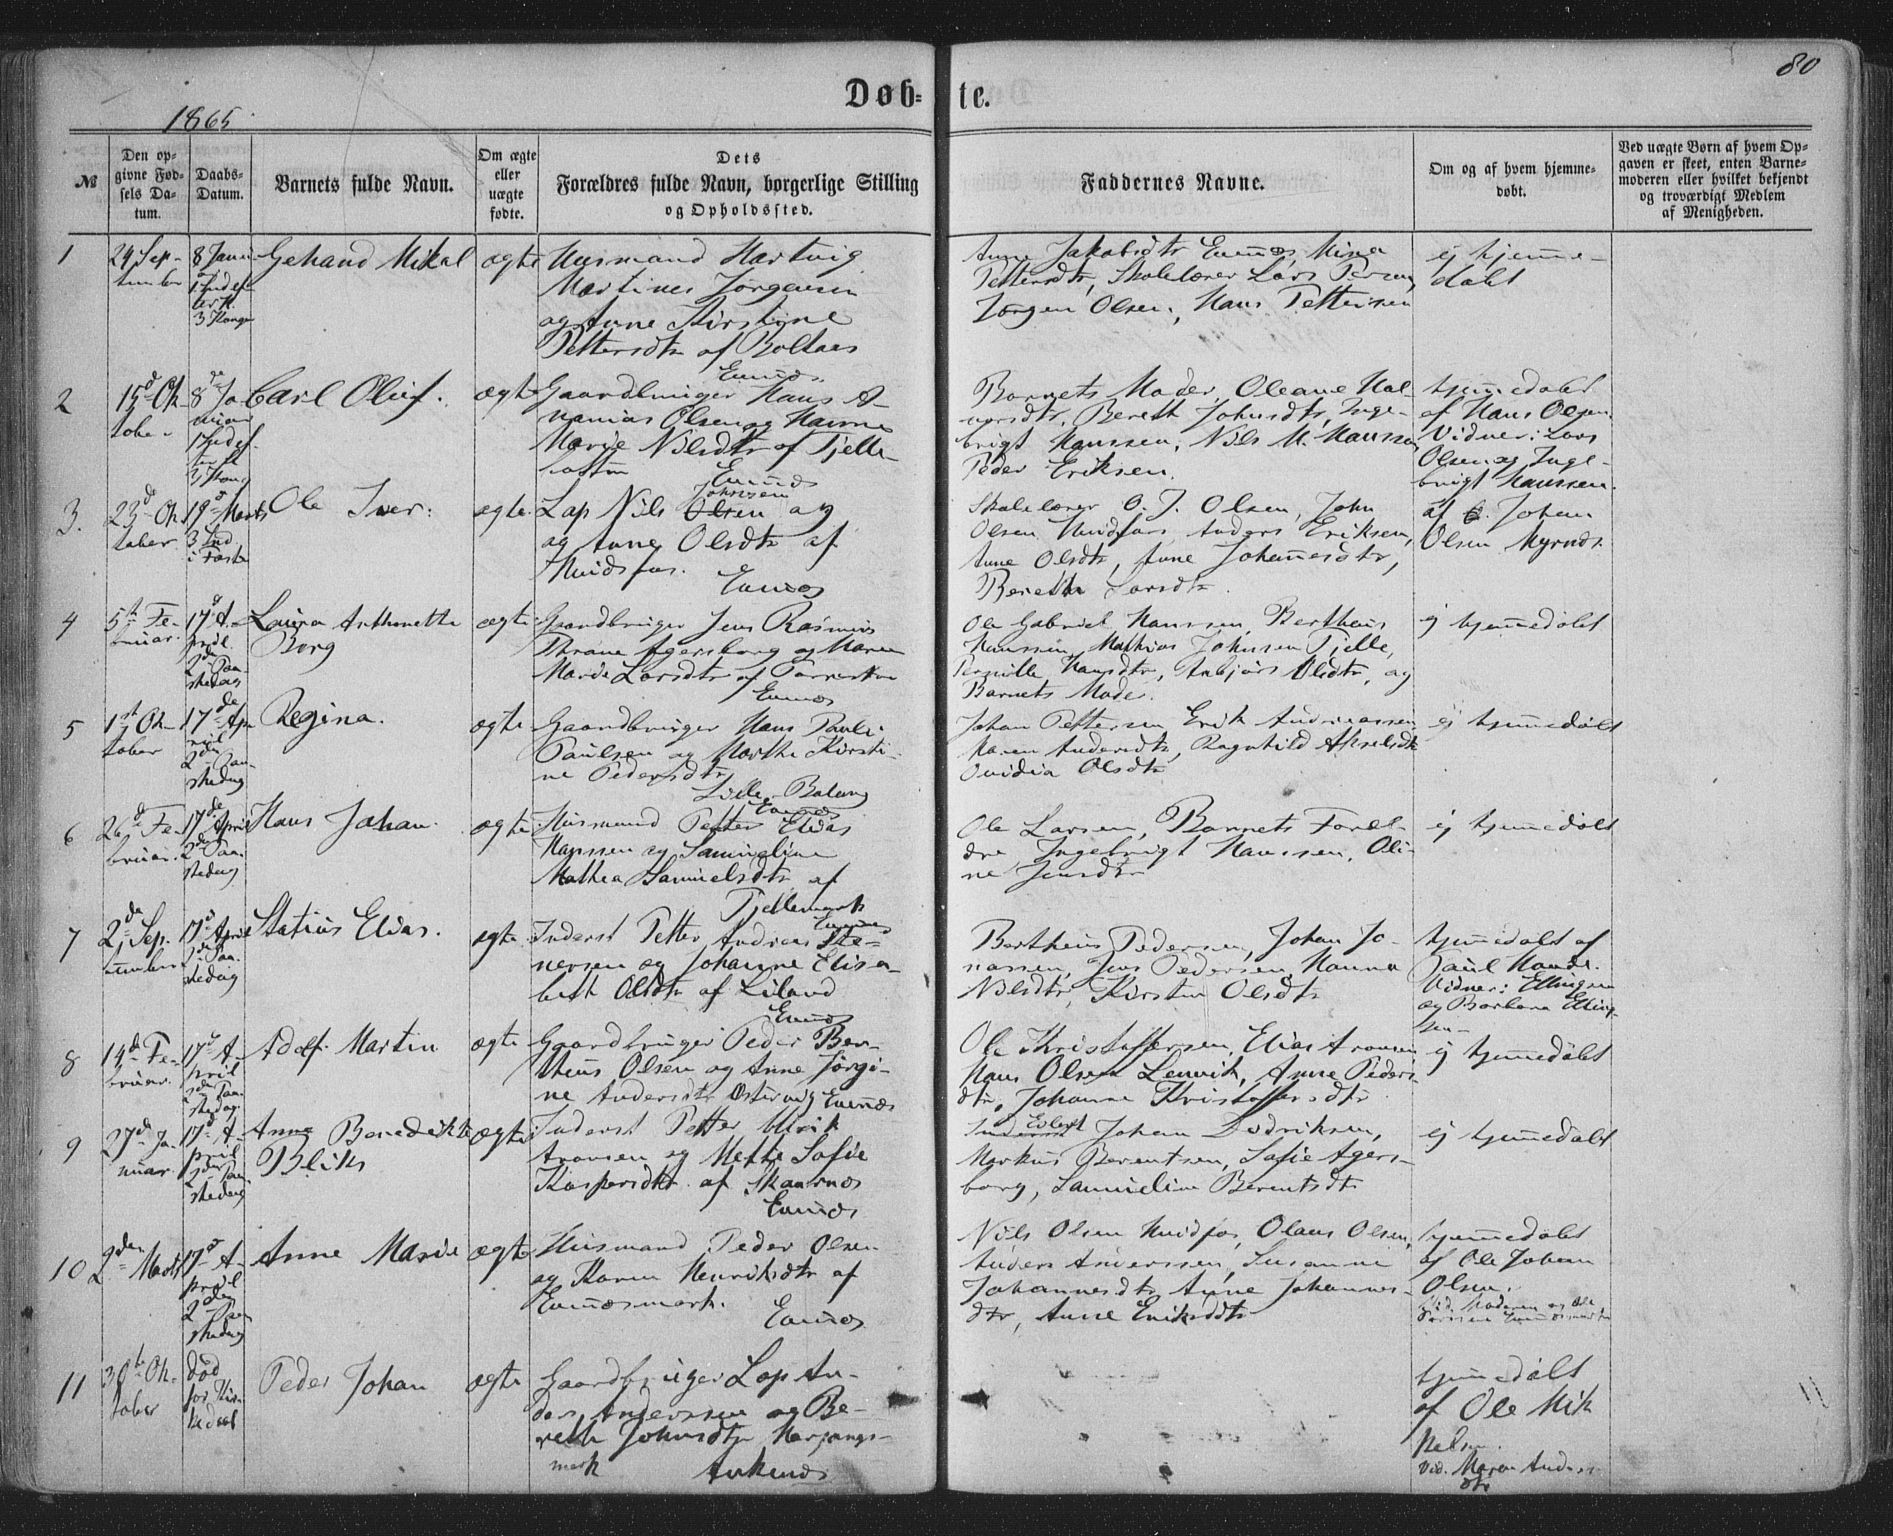 80
1865
Døb-te.
№
Den op-
givne Fød-
sels Da-
tum.
Daabs-
Datum.
Barnets fulde Navn.
Om ægte
eller
uægte
fødte.
Dets
Forældres fulde Navn, borgerlige Stilling
og Opholdssted.
Faddernes Navne.
Om og af hvem hjemme-
døbt.
Ved uægte Børn af hvem Op-
gaven er skeet, enten Barne-
moderen eller hvilket bekjendt
og troværdigt Medlem
af Menigheden.
1
24 Sep-
tember
8 Janu
3 Konger
Gehard Mikal
ægte
Husmand Hartvig
Martines Jørgensen
og Anne Kirstine
Pettersdtr af Boltaas
Evenæs
Anne Jakobsdtr Evenæs, Mina
Pettersdtr, Skolelærer Lars
Jørgen Olsen, Hans Pettersen
ej hjemme-
døbt
2
15d Ok
tober
8de Ja
nuar
Carl Oluf.
ægte
Gaardbruger Hans A-
nanias Olsen og Hanna
Marie Nilsdtr af Tjelle-
Evenæs
Barnets Moder, Oleane Hal
vorsdtr, Bereth Johnsdtr, Inge-
brigt Hanssen, Nils M. Hanssen
Peder Eriksen.
hjemmedøbt
af Hans Olsen
Vidner: Lars
Olsen og Inge-
brigt Hanssen.
3.
23d Ok
tober
19d Marts
3 Snd
i Faste
Ole Iver.
ægte.
Lap Nils Olsen og
Johnsen
og Anne Olsdtr af
Hvidfos.
Evenæs
Skolelærer O. J. Olsen, John
Olsen Hvidfos, Anders Eriksen,
Anne Olsdtr, Anne Johannesdtr,
Beretha Larsdtr.
af Johan
Olsen Myrnæs
4
5te Fe-
bruar.
17d A-
pril
2den Paa
skedag
Laura Anthonette
Borg
ægte
Gaardbruger Jens Rasmus
Thrane Agersborg og Maren
Marie Larsdtr af
Evenæs
Ole Gabriel Hanssen, Bertheus
Hanssen, Mathias Johnsen Tjelle,
Pernille Hansdtr, Anbjør Olsdtr, og
Barnets Moder.
ej hjemmedøbt
5
1st Ok
tober
17de Ap
ril
2den Paa-
skedag
Regina.
ægte
Gaardbruger Hans Pauli
Paulsen og Marthe Kirsti-
ne Pedersdtr
Lille Balang
Evenæs
Johan Pettersen Erik Andreassen
Maren Andersdtr, Ragnhild Akselsdtr
Ovidia Olsdtr
ej hjemmedøbt
6
26d Fe-
bruar.
17de April
2den Paa-
skedag
Hans Johan.
ægte
Husmand Petter Elias
Hanssen og Samueline
Mathea Samuelsdtr af
Tjellemark
Evenæs
Ole Larsen, Barnets Foræl-
dre, Ingebrigt Hanssen, Oli-
ne Jensdtr
ej hjemmedøbt
7
2den Sep.
tember
17d April
2den Paa-
skedag
Statius Elias.
ægte
Inderst Petter Andreas Ste-
nersen og Johanne Elisa-
beth Olsdtr af Liland
Evenæs
Bertheus Pedersen, Johan Jo-
nassen, Jens Pedersen, Hanna
Nilsdtr, Kirsten Olsdtr
hjemmedøbt af
Paul
Vidner: Ellingsen
og Barbara Elling-
sen
8
14de Fe-
bruar.
17d A-
pril
2den Paa-
skedag
Adolf Martin
ægte
Gaardbruger Peder Ber-
theus Olsen og Anne Jørgi-
ne Andersdtr Østervig Evenæs
Ole Kristoffersen, Elias Aronsen
Hans Olsen Lenvik, Anne Peders-
dtr, Johanne Kristoffersdtr
ej hjemmedøbt
9
27d Ja-
nuar.
17d A-
pril
2den Paa-
skedag
Anna Benedikte
Bliks
ægte
Inderst Petter Ulrik
Aronsen og Mette Sofie
Kaspersdtr. af Skaanæs
Evenæs
Johan Didriksen,
Markus Berentsen, Sofie Agers-
borg, Samueline Berentsdtr
ej hjemmedøbt
10
2den Marts
17d A-
pril
2den Paa
skedag
Anne Marie
ægte
Husmand Peder Olsen
og Karen Henriksdtr af
Evenæsmark.
Evenæs
Nils Olsen Hvidfos, Olaus Olsen,
Anders Anderssen, Susanne
Johannesdtr, Anne Johannes-
dtr, Anne Eriksdtr
hjemmedøbt
af Ole Johan
Olsen.
Vid. Moderen og Ole
11
30te Ok-
tober
død
Peder Johan
ægte
Gaardbruger Lap An-
ders Anderssen og Be-
reth Johnsdtr Herjangs-
mark
Ankenæs
hjemmedøbt
af Ole Mik
kelsen.
Vid. Maren Anders
dtr
11